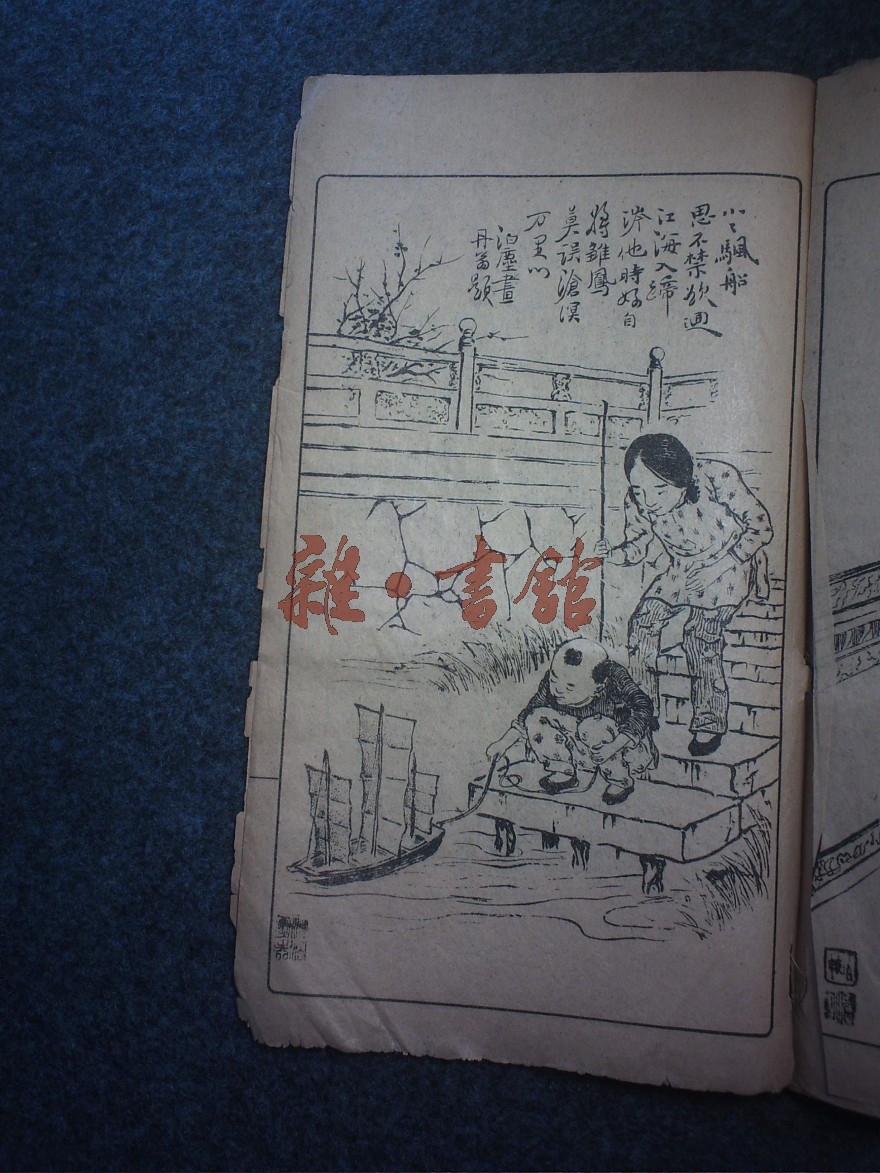 小々颿船
思不禁欲迴
江海入蹄
涔他時好自
將雛鳳
莫誤滄溟
万里心
泊塵畫
丹翁題
雜·書館